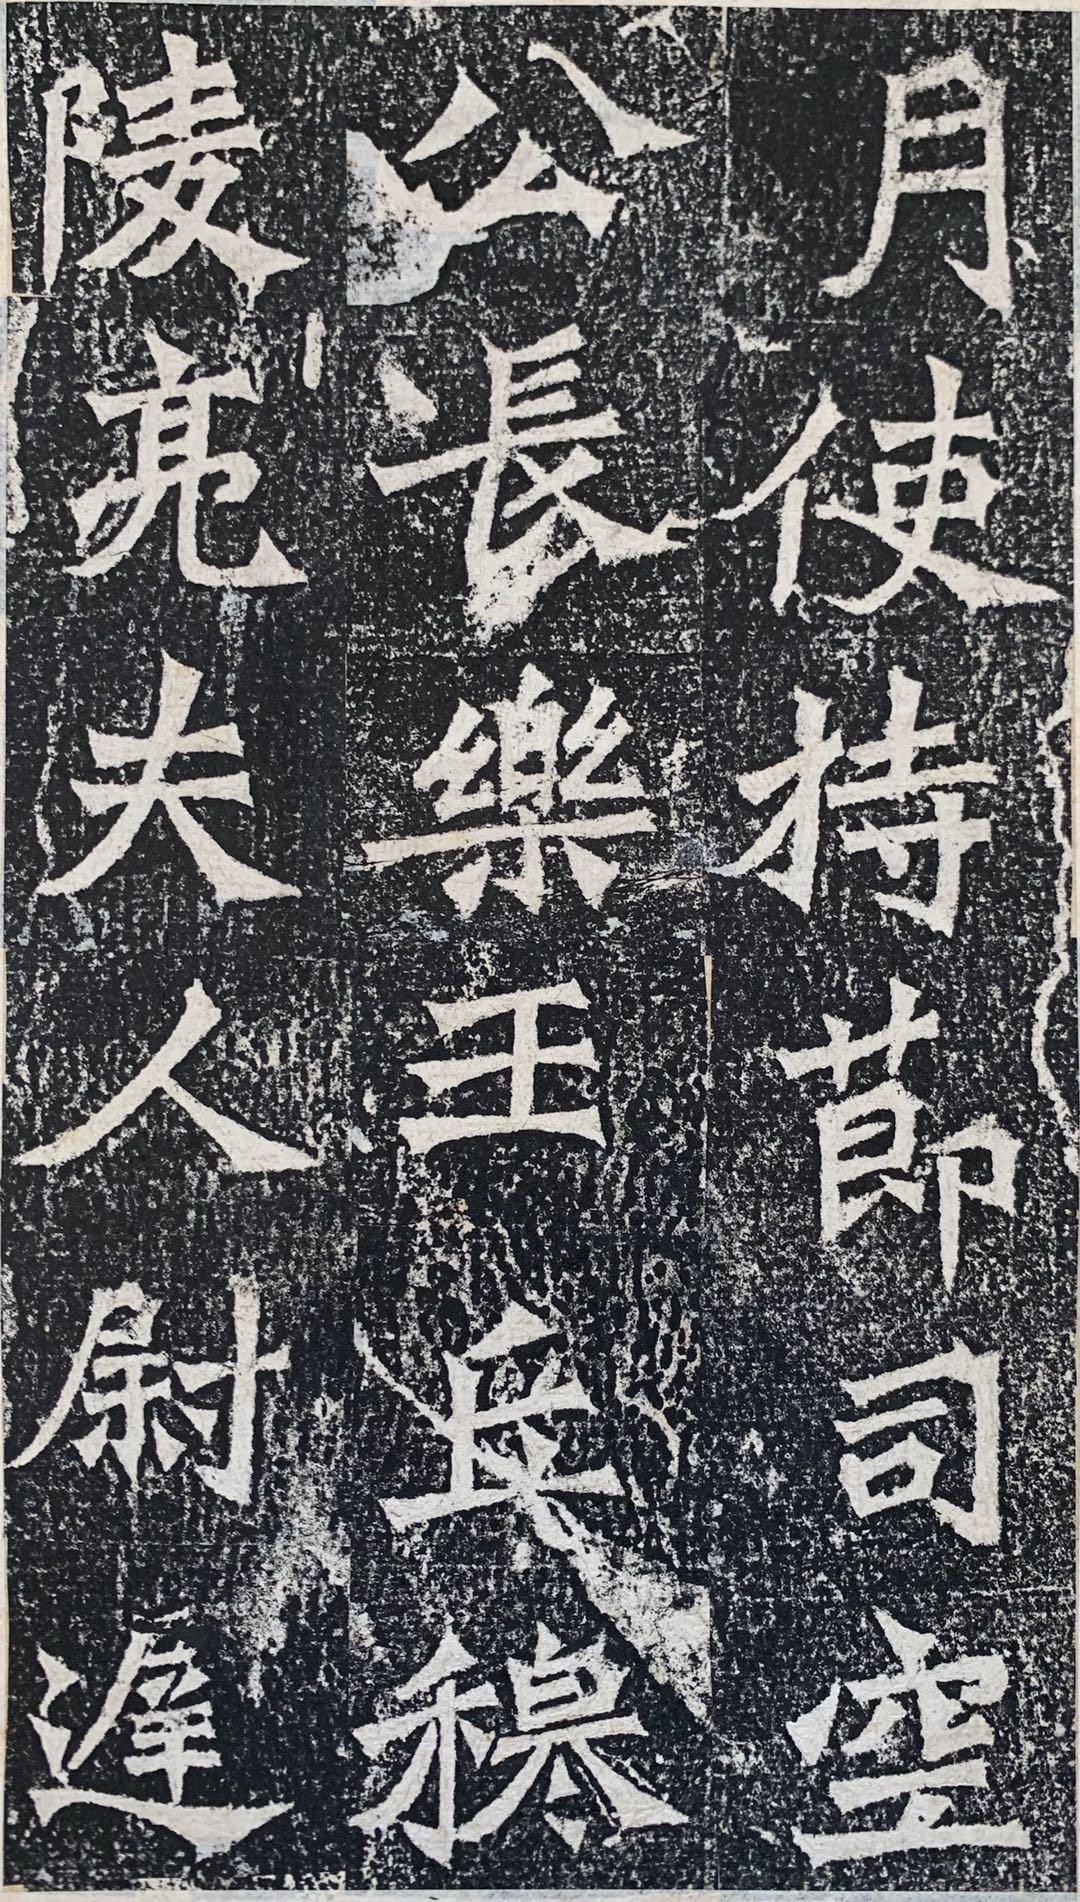 月使持節司空
公長樂王丘穆
陵亮夫人尉遲